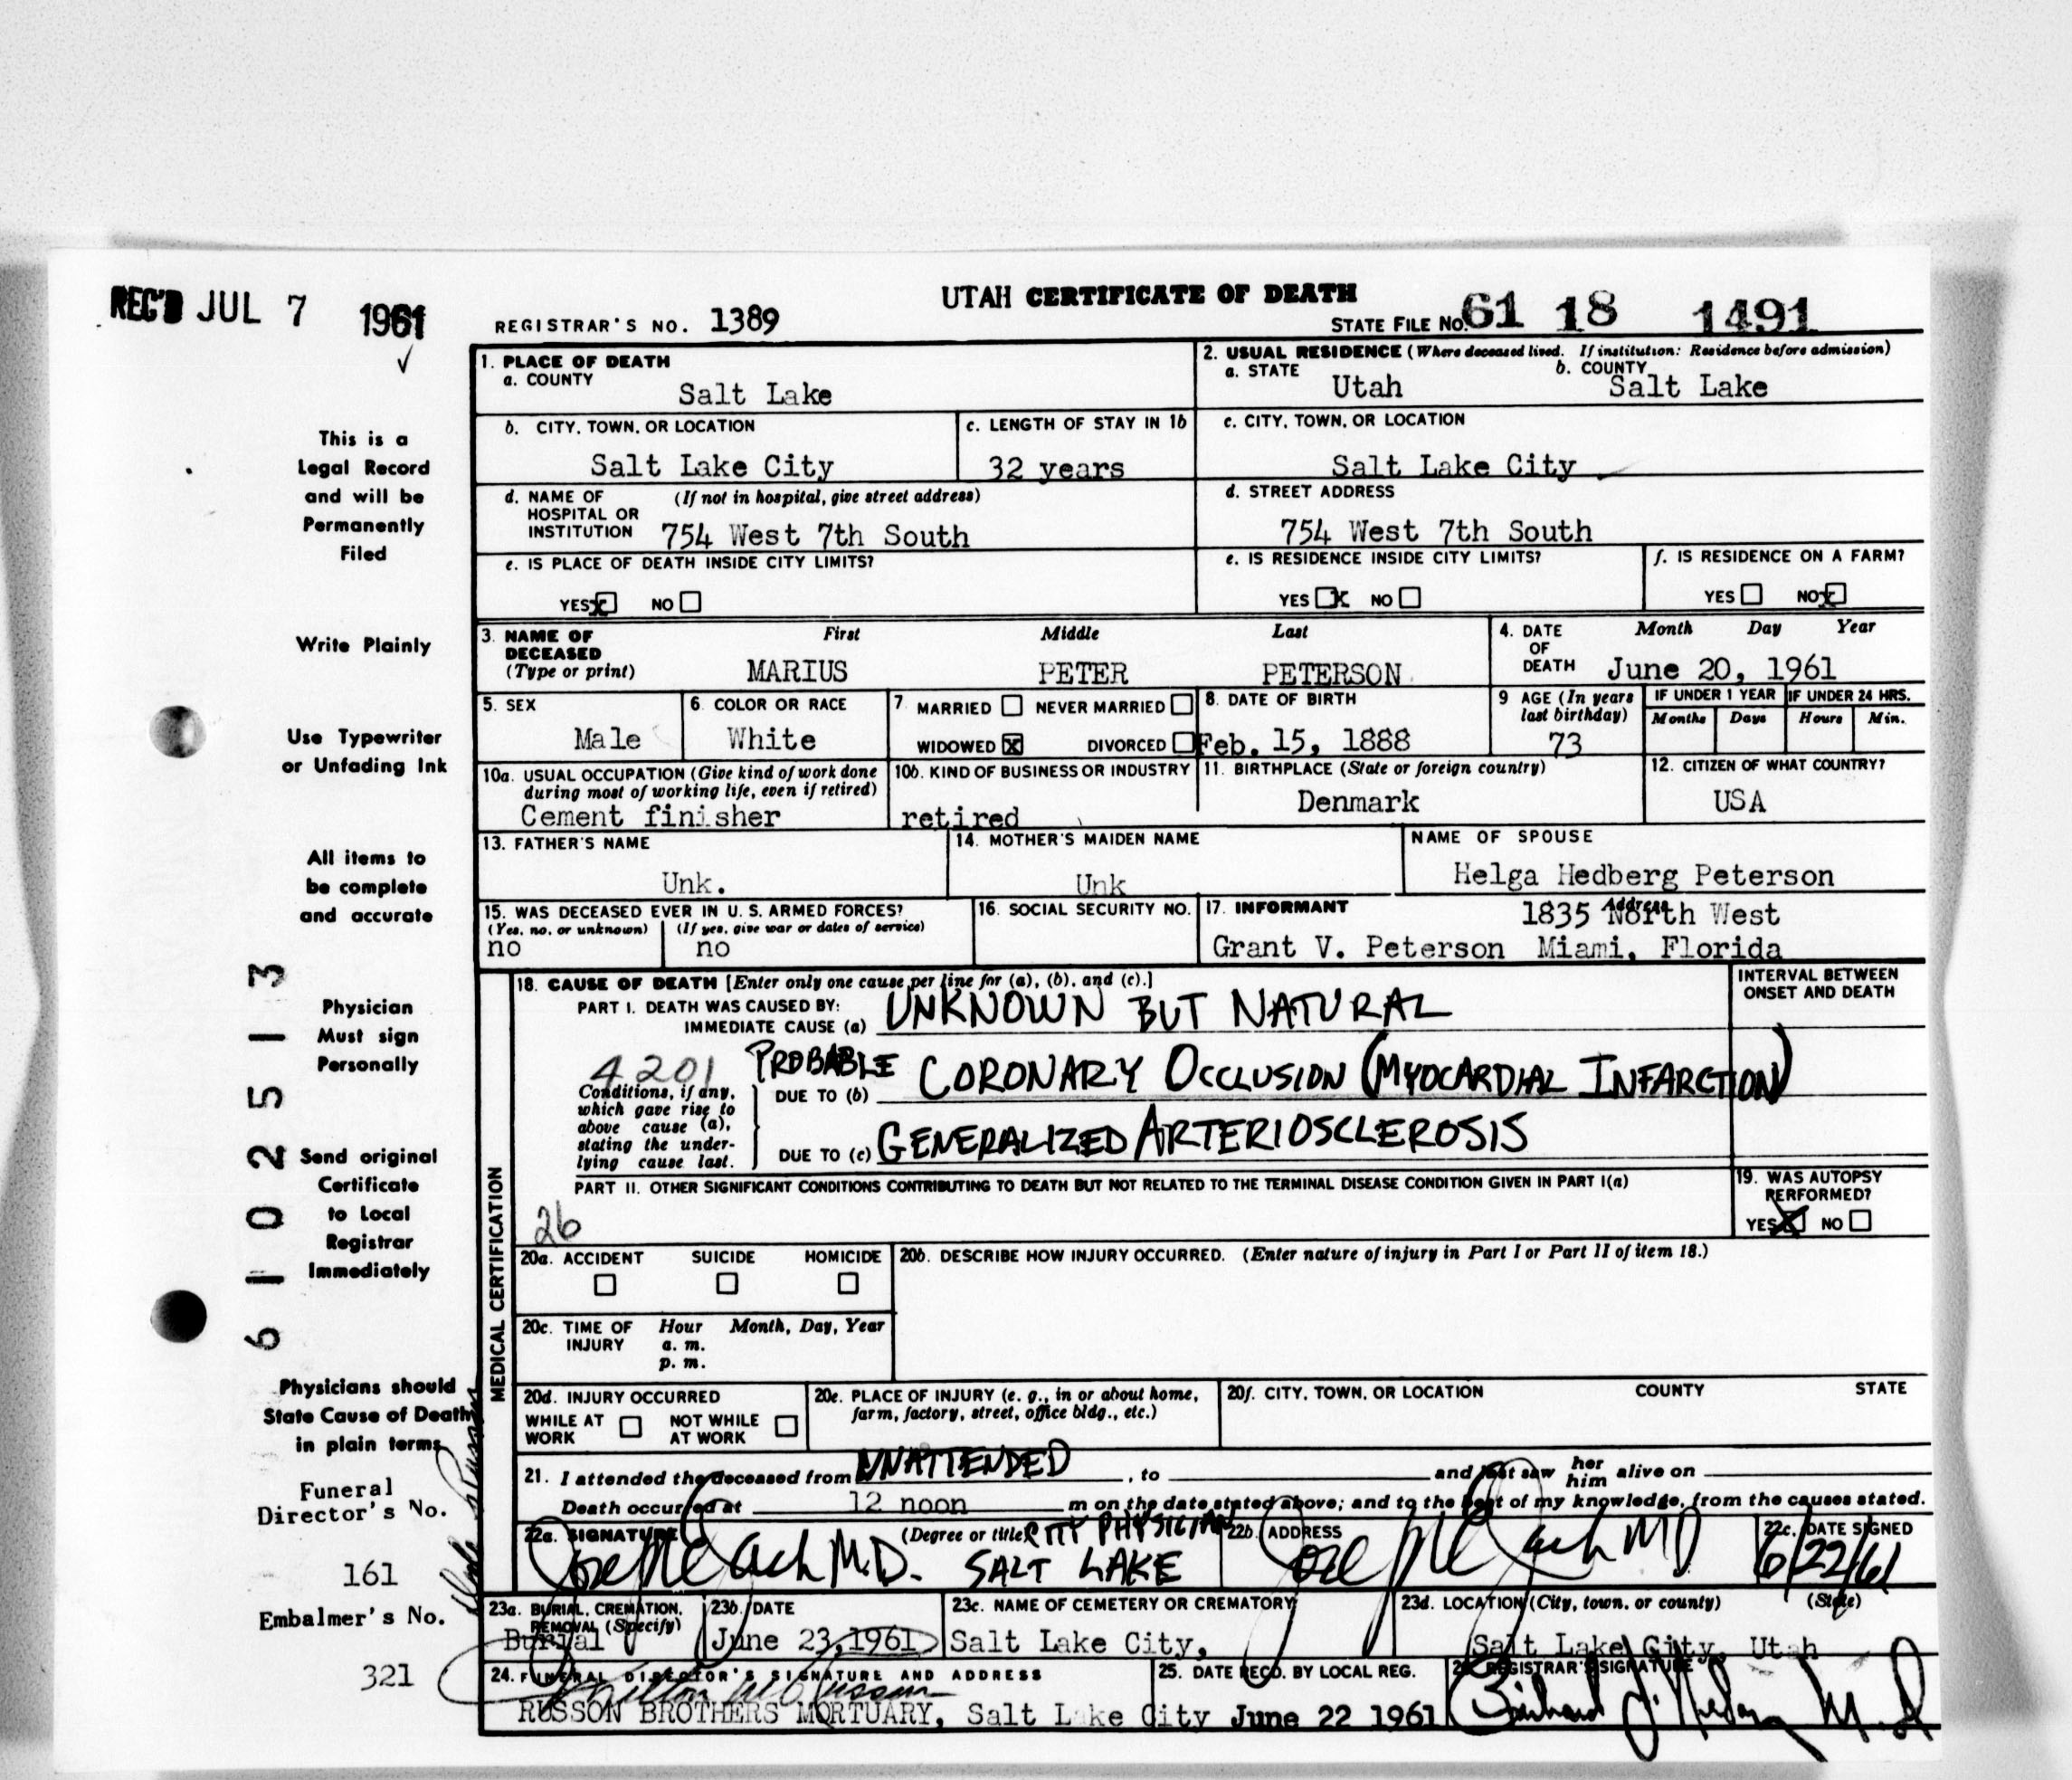 REC'D JUL 7 1961
UTAH CERTIFICATE OF DEATH
REGISTRAR'S NO. 1389
STATE FILE NO. 61 18 1491
This is a
Legal Record
and will be
Permanently
Filed
Write Plainly
Use Typewriter
or Unfading Ink
All items to
be complete
and accurate
Physician
Must sign
Personally
Send original
Certificate
to Local
Registrar
Immediately
Physicians should
State Cause of Death
in plain terms
Funeral
Director's No.
161
Embalmer's No.
321
61025513
1. PLACE OF DEATH
a. COUNTY
Salt Lake
2. USUAL RESIDENCE (Where deceased lived. If institution: Residence before admission)
a. STATE Utah b. COUNTY Salt Lake
b. CITY, TOWN, OR LOCATION
Salt Lake City
c. LENGTH OF STAY IN 1b
32 years
c. CITY, TOWN, OR LOCATION
Salt Lake City
d. NAME OF (If not in hospital, give street address)
HOSPITAL OR
INSTITUTION 754 West 7th South
d. STREET ADDRESS
754 West 7th South
e. IS PLACE OF DEATH INSIDE CITY LIMITS?
YES x NO
e. IS RESIDENCE INSIDE CITY LIMITS?
YES x NO
f. IS RESIDENCE ON A FARM?
YES NO x
3. NAME OF DECEASED (Type or print)
First Middle Last
MARIUS PETER PETERSON
4. DATE OF DEATH Month Day Year
June 20, 1961
5. SEX
Male
6. COLOR OR RACE
White
7. MARRIED NEVER MARRIED
WIDOWED X DIVORCED
8. DATE OF BIRTH
Feb. 15, 1888
9 AGE (In years last birthday)
73
IF UNDER 1 YEAR IF UNDER 24 HRS.
Months Days Hours Min.
10a. USUAL OCCUPATION (Give kind of work done
during most of working life, even if retired)
Cement finisher
10b. KIND OF BUSINESS OR INDUSTRY
retired
11. BIRTHPLACE (State or foreign country)
Denmark
12. CITIZEN OF WHAT COUNTRY?
USA
13. FATHER'S NAME
Unk.
14. MOTHER'S MAIDEN NAME
Unk
NAME OF SPOUSE
Helga Hedberg Peterson
15. WAS DECEASED EVER IN U. S. ARMED FORCES?
(Yes, no, or unknown) (If yes, give war or dates of service)
no no
16. SOCIAL SECURITY NO.
17. INFORMANT Address
1835 North West
Grant V. Peterson Miami, Florida
MEDICAL CERTIFICATION
18. CAUSE OF DEATH [Enter only one cause per line for (a), (b), and (c).]
PART I. DEATH WAS CAUSED BY:
IMMEDIATE CAUSE (a) UNKNOWN BUT NATURAL
INTERVAL BETWEEN
ONSET AND DEATH
4201
Conditions, if any,
which gave rise to
above cause (a),
stating the under-
lying cause last.
DUE TO (b) PROBABLE CORONARY OCCLUSION (MYOCARDIAL INFARCTION)
DUE TO (c) GENERALIZED ARTERIOSCLEROSIS
PART II. OTHER SIGNIFICANT CONDITIONS CONTRIBUTING TO DEATH BUT NOT RELATED TO THE TERMINAL DISEASE CONDITION GIVEN IN PART I(a)
26
19. WAS AUTOPSY
PERFORMED?
YES X NO
20a. ACCIDENT SUICIDE HOMICIDE
20b. DESCRIBE HOW INJURY OCCURRED. (Enter nature of injury in Part I or Part II of item 18.)
20c. TIME OF INJURY Hour Month, Day, Year
a. m.
p. m.
20d. INJURY OCCURRED
WHILE AT WORK NOT WHILE AT WORK
20e. PLACE OF INJURY (e. g., in or about home,
farm, factory, street, office bldg., etc.)
20f. CITY, TOWN, OR LOCATION COUNTY STATE
21. I attended the deceased from UNATTENDED , to and last saw her him alive on
Death occurred at 12 noon m on the date stated above; and to the best of my knowledge, from the causes stated.
22a. SIGNATURE (Degree or title) CITY PHYSICIAN
M.D. SALT LAKE
22b. ADDRESS
MD
22c. DATE SIGNED
6/22/61
23a. BURIAL, CREMATION,
REMOVAL (Specify)
Burial
23b. DATE
June 23, 1961
23c. NAME OF CEMETERY OR CREMATORY
Salt Lake City,
23d. LOCATION (City, town, or county) (State)
Salt Lake City, Utah
24. FUNERAL DIRECTOR'S SIGNATURE AND ADDRESS
RUSSON BROTHERS MORTUARY, Salt Lake City
25. DATE RECD. BY LOCAL REG.
June 22 1961
26. REGISTRAR'S SIGNATURE